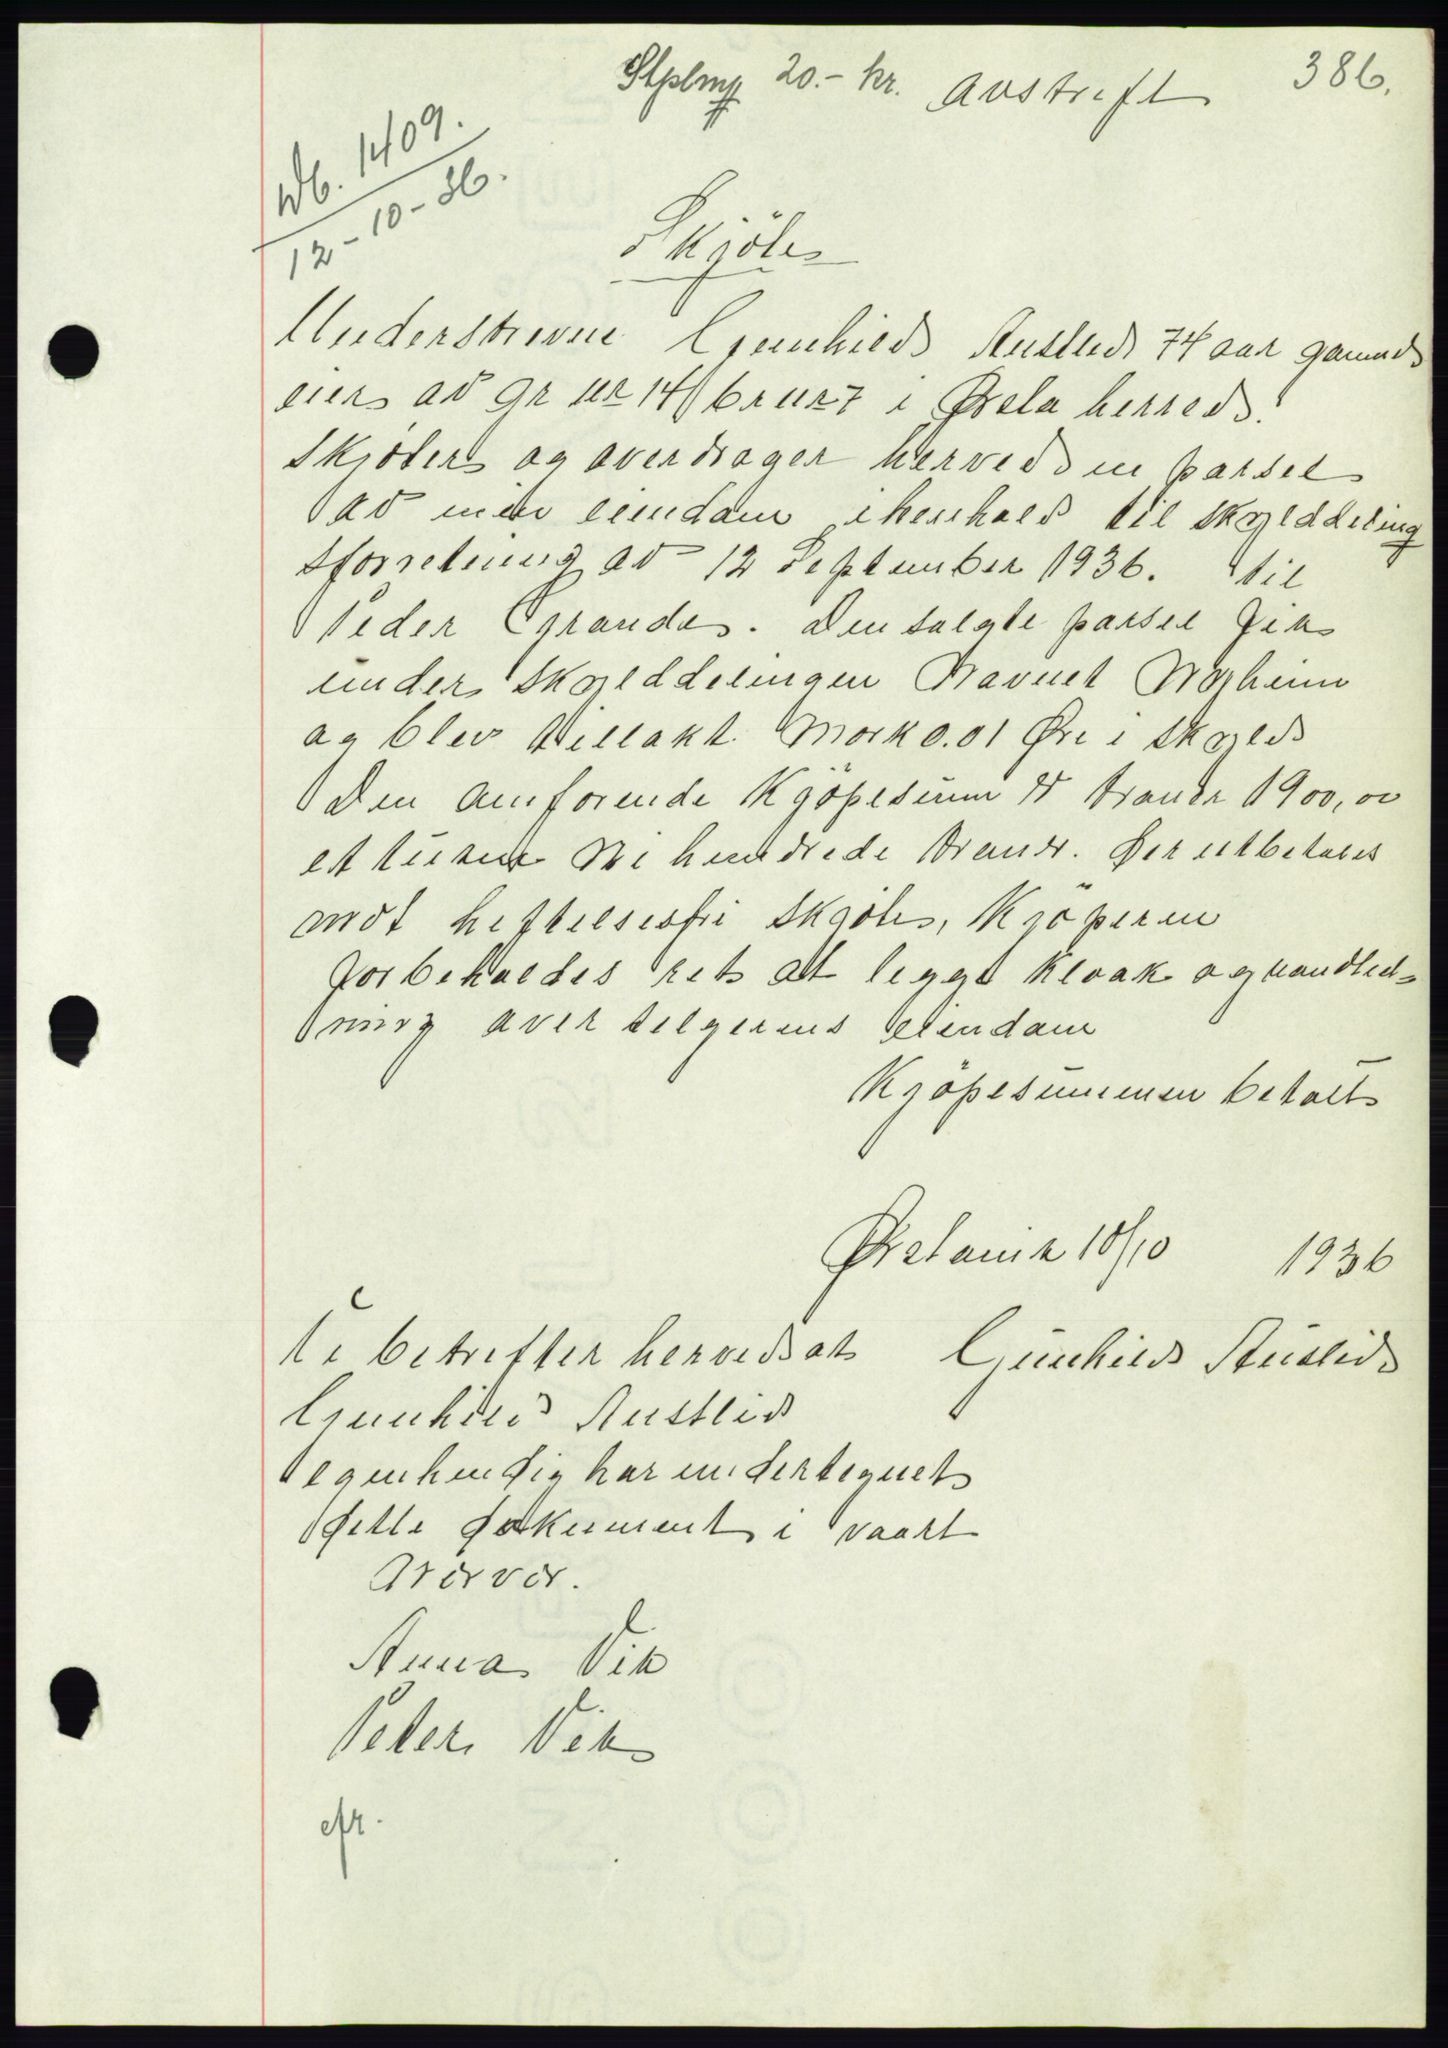 Stplmp 20.- kr. Avskrift 386.
Db. 1409.
12-10-36.
Skjöte
Underskreven Gunhild Austlid 74 aar gammel
eier av gr nr 14 br nr 7 i Ørsta herred.
Skjöter og overdrager herved en parsel
av min eiendom i henhold til skylddeling
sforretning av 12 September 1936. til
Peder Grande. Den solgte parsel fik
under skylddelingen Navnet Nyheim
og blev tillakt Mark 0.01 Øre i skyld
Den omforende Kjöpesum er kroner 1900,00
et tusen Ni hundrede kroner. Der utbetales
mot heftelsesfri skjöte, Kjöperen
forbeholdes ret at legge Kloak og vandled-
ning over selgerens eiendom
Kjöpesummen betalt
Ørstavik 10/10 1936
Vi bekrefter herved at Gunhild Austlid
Gunhild Austlid
egenhendig har undertegnet
dette dokument i vaart
nærvær.
Anna Vik
Peter Vik